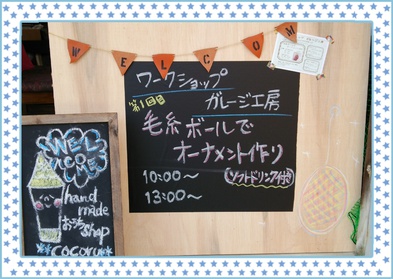 WELCOM
ワークショップ
第1回目
ガレージ工房
毛糸ボールで
オーナメント作り
(ソフトドリンク付)
10:00〜
13:00〜
WEL
COME
hand
made
おうち
shop
cocoru